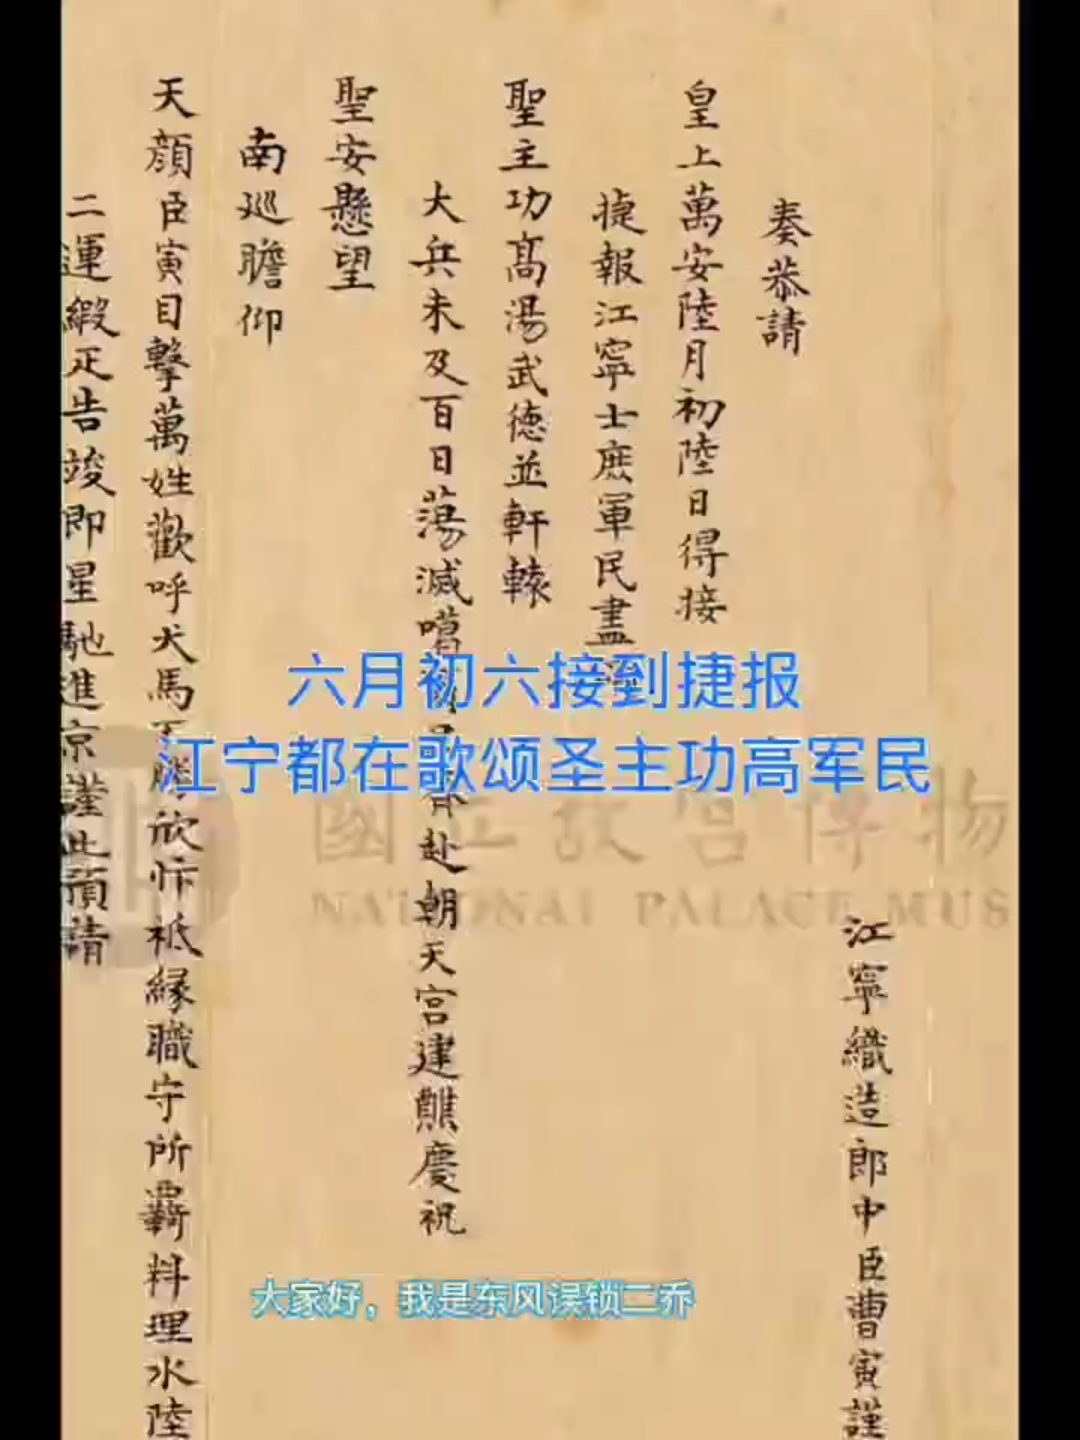 江寧織造郎中臣曹寅謹
奏恭請
皇上萬安陸月初陸日得接
捷報江寧士庶軍民盡
聖主功髙湯武徳並軒轅
大兵未及百日蕩滅噶齊赴朝天宮建醮慶祝
聖安懸望
南巡瞻仰
天顏臣寅目擊萬姓歡呼犬馬不勝欣忭祗縁職守所羈料理水陸
二運緞疋告竣即星馳進京謹此預請
六月初六接到捷报
江宁都在歌颂圣主功高军民
國立故宮博物
NATIONAL PALACE MUS
大家好，我是东风误锁二乔